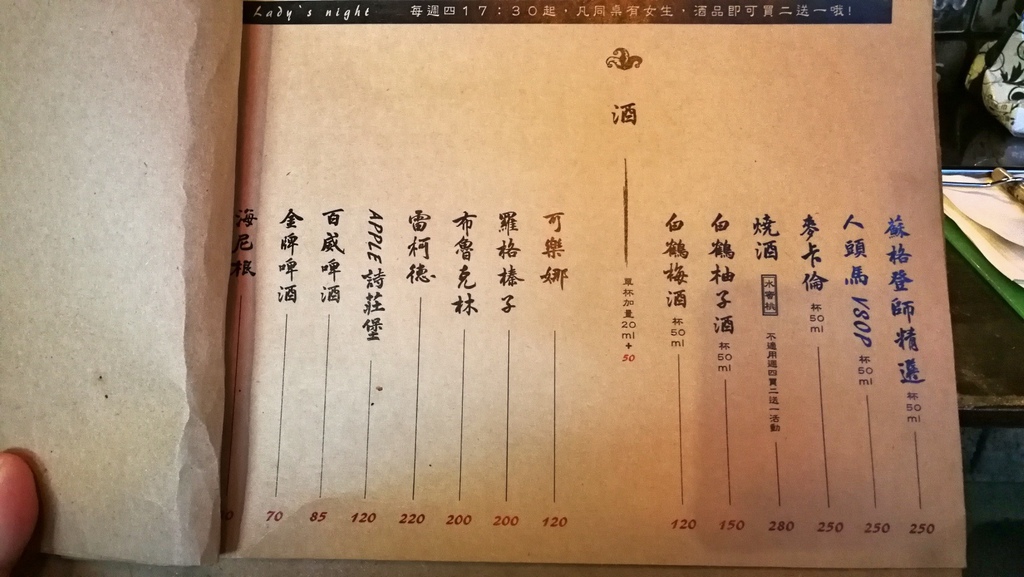 Lady's night 每週四17:30起,凡同桌有女生,酒品即可買二送一哦!
蘇格登師精選 杯50ml 250
人頭馬VSOP 杯50ml 250
麥卡倫 杯50ml 250
燒酒 水蜜桃 不適用週四買二送一活動 280
白鶴柚子酒 杯50ml 150
白鶴梅酒 杯50ml 120
酒
單杯加量20ml+50
可樂娜 120
羅格榛子 200
布魯克林 200
雷柯德 220
APPLE詩莊堡 120
百威啤酒 85
金牌啤酒 70
海尼根